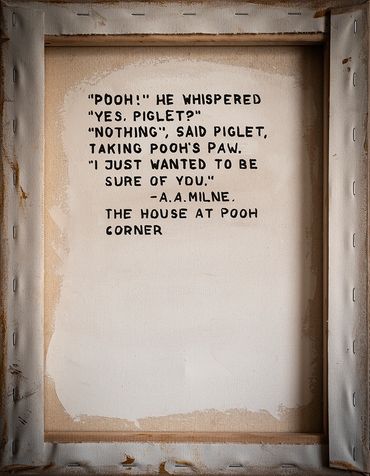 "POOH!" HE WHISPERED
"YES, PIGLET?"
"NOTHING", SAID PIGLET,
TAKING POOH'S PAW.
"I JUST WANTED TO BE
SURE OF YOU."
-A.A.MILNE.
THE HOUSE AT POOH
CORNER